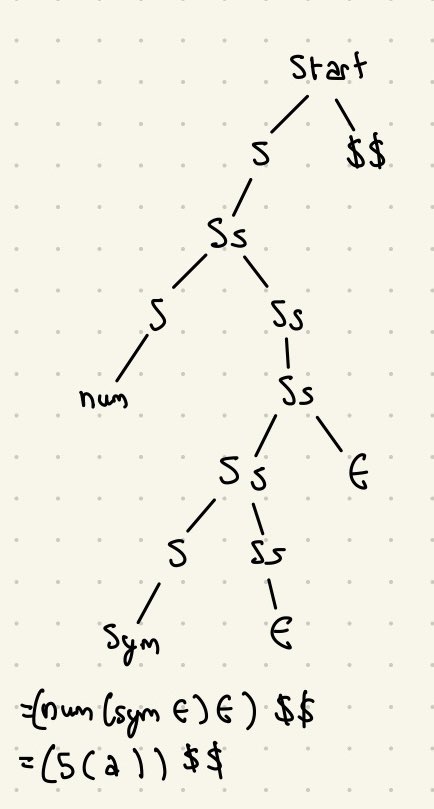 Start
S $$
Ss
S Ss
num Ss
Ss ϵ
S Ss
Sym ϵ
=(num(sym ϵ)ϵ) $$
=(5(a)) $$